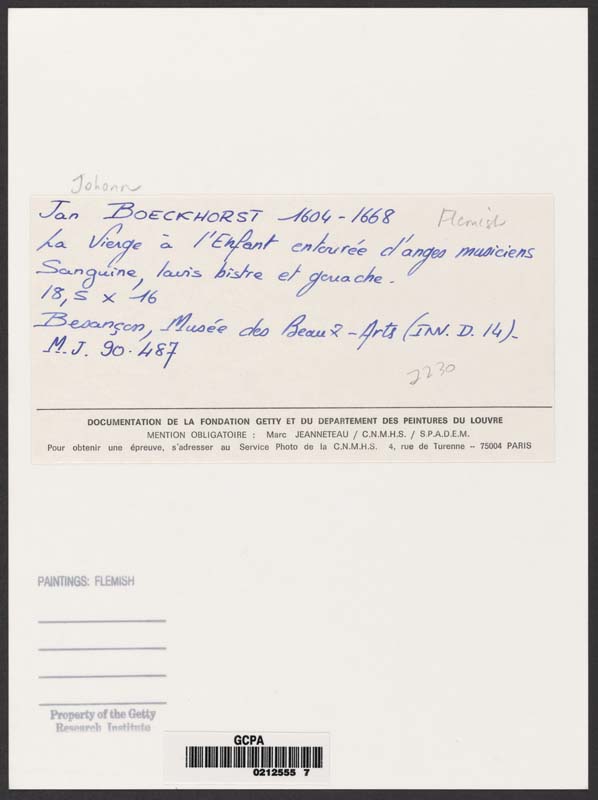 Johann
Jan BOECKHORST 1604-1668 Flemish
La Vierge à l'Enfant entourée d'anges musiciens
Sanguine, lavis bistre et gouache.
18,5 x 16
Besançon, Musée des Beaux-Arts (INV. D. 14).
M.J. 90.487
2230
DOCUMENTATION DE LA FONDATION GETTY ET DU DEPARTEMENT DES PEINTURES DU LOUVRE
MENTION OBLIGATOIRE : Marc JEANNETEAU / C.N.M.H.S. / S.P.A.D.E.M.
Pour obtenir une épreuve, s'adresser au Service Photo de la C.N.M.H.S. 4, rue de Turenne -- 75004 PARIS
PAINTINGS: FLEMISH
Property of the Getty
Research Institute
GCPA
0212555 7